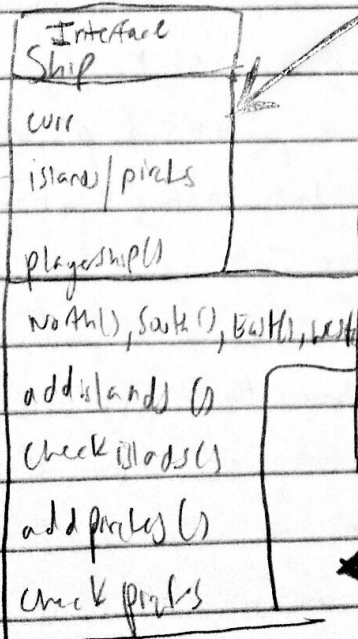 Interface
Ship
curr
islands/pirates
playership()
North(), South(), East(), West(
addislands ()
checkislads()
addpirates ()
check pirates